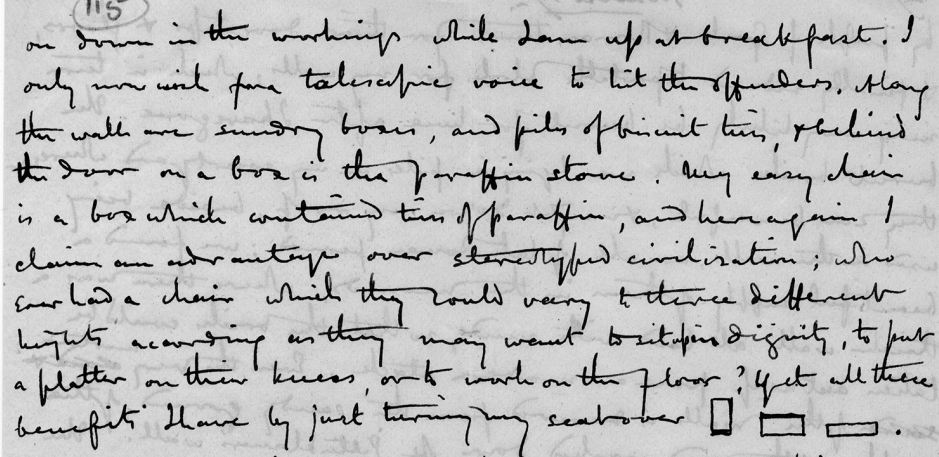 115
on down in the workings while I am up at breakfast. I
only now wish for a telescopic voice to hit the offenders. Along
the walls are sundry boxes, and piles of biscuit tins, & behind
the door on a box is the paraffin stove. My easy chair
is a box which contained tins of paraffin, and here again I
claim an advantage over stereotyped civilization; who
ever had a chair which they could vary to three different
heights according as they may want to sit up in dignity, to put
a platter on their knees, or to work on the floor? Yet all these
benefits I have by just turning my seat over